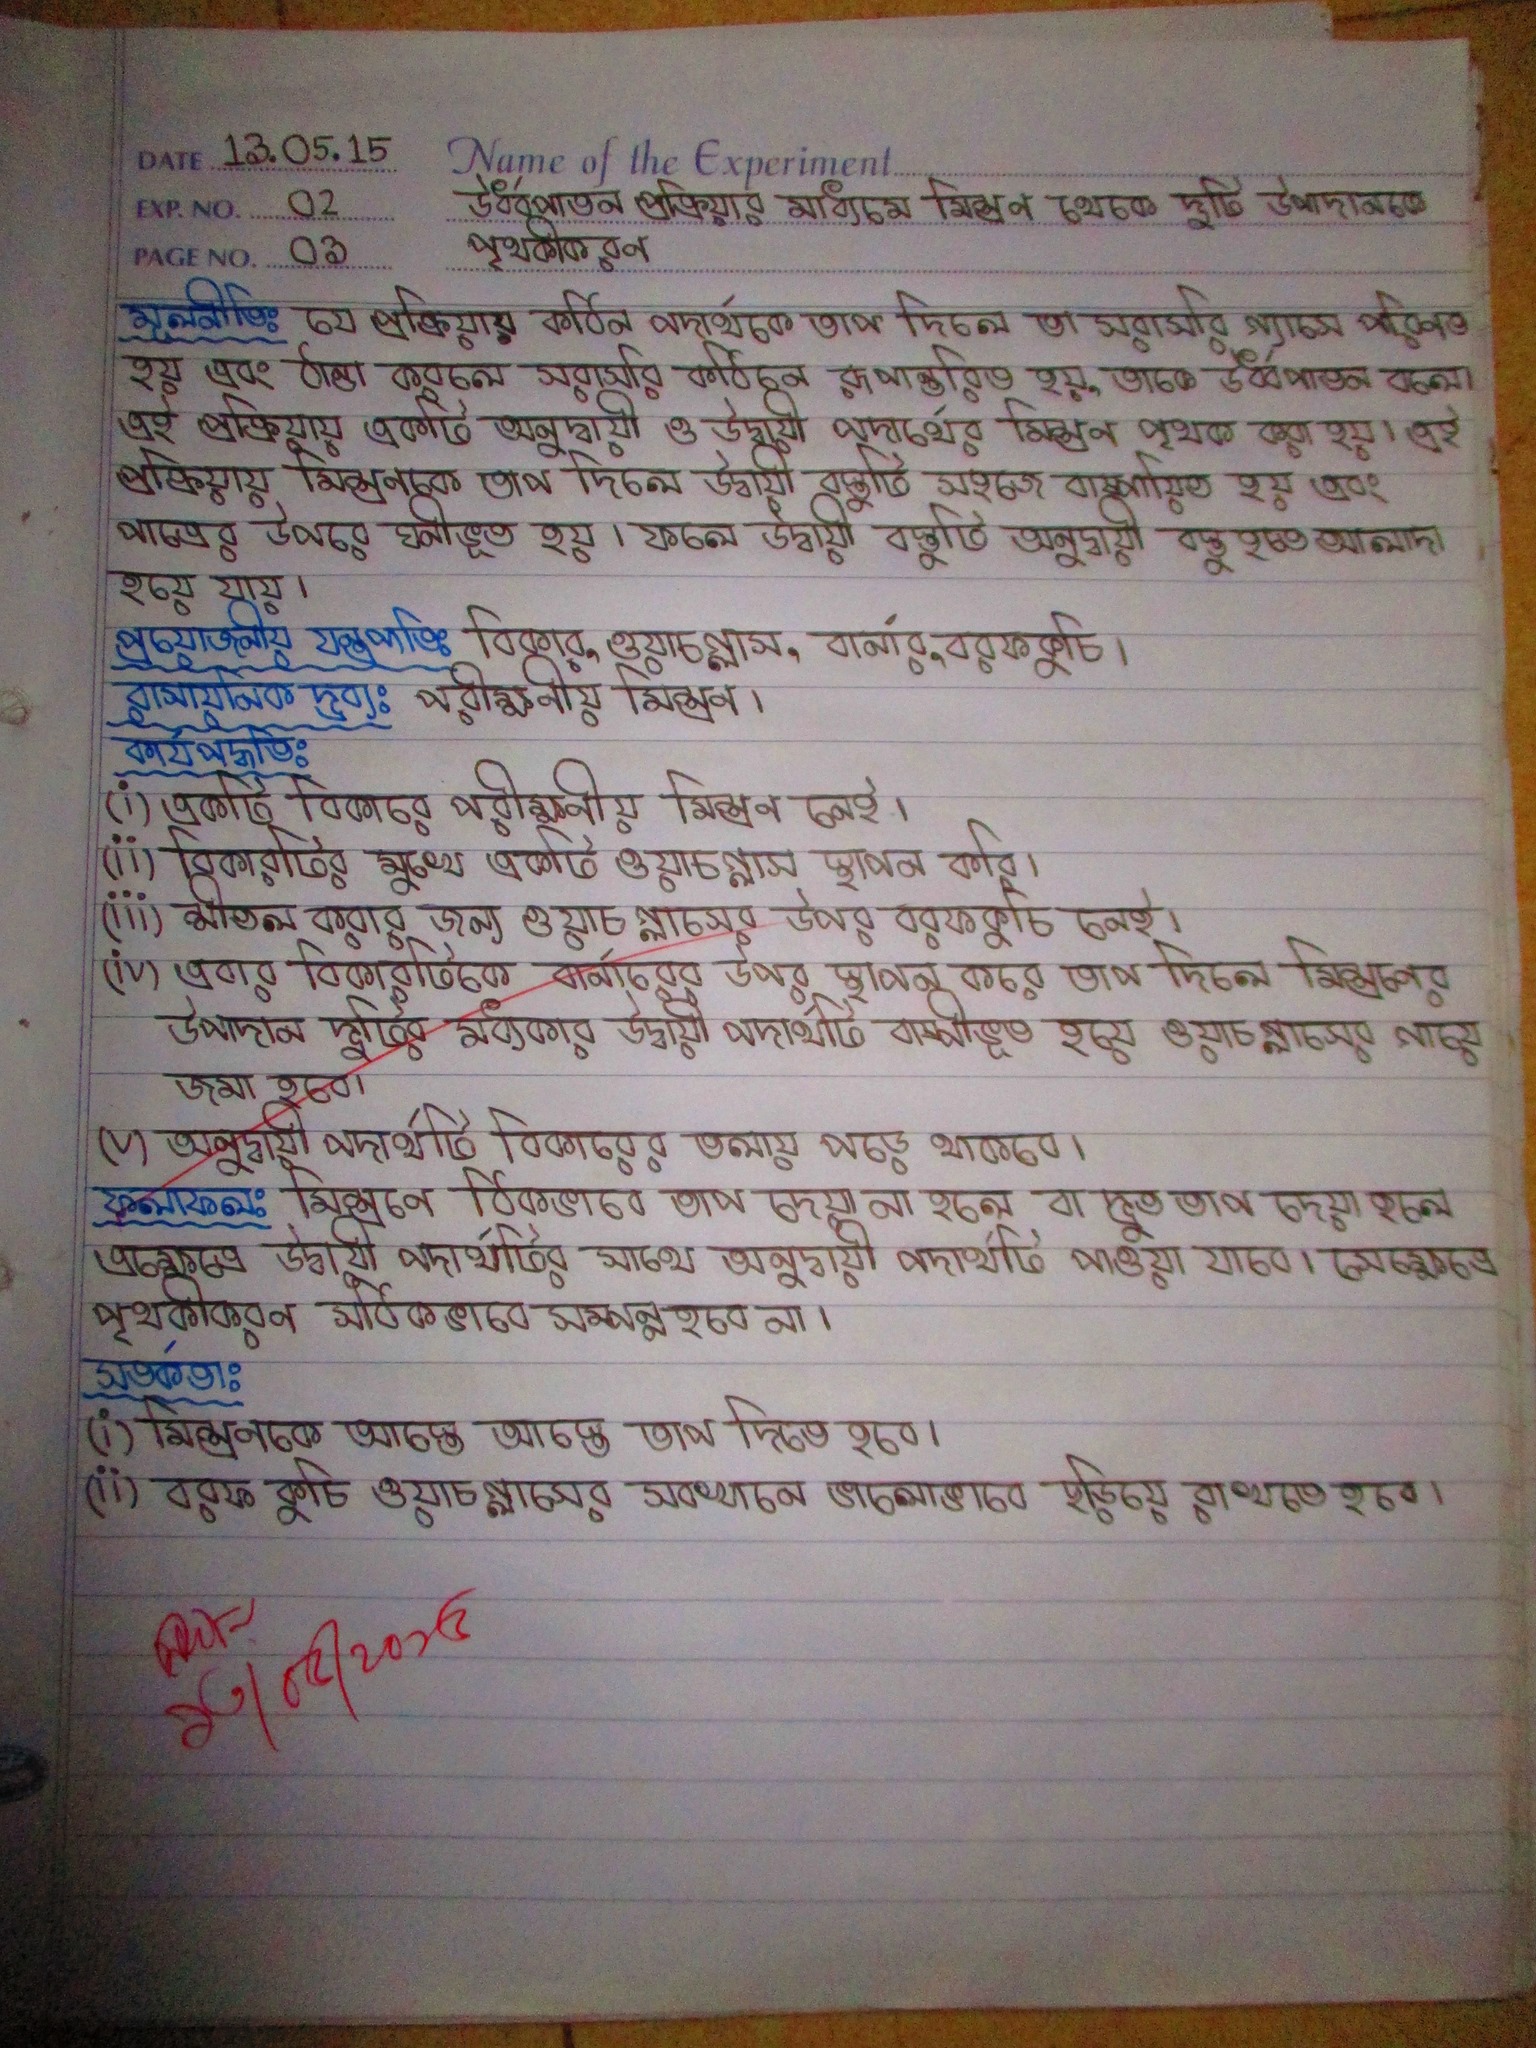 DATE 13.05.15 Name of the Experiment
EXP. NO. 02 উর্ধ্বপাতন প্রক্রিয়ার মাধ্যমে মিশ্রন থেকে দুটি উপাদানকে
PAGE NO. 03 পৃথকীকরন
মূলনীতিঃ যে প্রক্রিয়ায় কঠিন পদার্থকে তাপ দিলে তা সরাসরি গ্যাসে পরিণত
হয় এবং ঠান্ডা করলে সরাসরি কঠিনে রূপান্তরিত হয়, তাকে উর্ধ্বপাতন বলে।
এই প্রক্রিয়ায় একটি অনুদ্বায়ী ও উদ্বায়ী পদার্থের মিশ্রন পৃথক করা হয়। এই
প্রক্রিয়ায় মিশ্রনকে তাপ দিলে উদ্বায়ী বস্তুটি সহজে বাষ্পায়িত হয় এবং
পাত্রের উপরে ঘনীভূত হয়। ফলে উদ্বায়ী বস্তুটি অনুদ্বায়ী বস্তু হতে আলাদা
হয়ে যায়।
প্রয়োজনীয় যন্ত্রপাতিঃ বিকার, ওয়াচগ্লাস, বার্নার, বরফকুচি।
রাসায়নিক দ্রব্যঃ পরীক্ষনীয় মিশ্রন।
কার্যপদ্ধতিঃ
(i) একটি বিকারে পরীক্ষনীয় মিশ্রন নেই।
(ii) বিকারটির মুখে একটি ওয়াচগ্লাস স্থাপন করি।
(iii) শীতল করার জন্য ওয়াচগ্লাসের উপর বরফকুচি নেই।
(iv) এবার বিকারটিকে বার্নারের উপর স্থাপন করে তাপ দিলে মিশ্রনের
উপাদান দুটির মধ্যকার উদ্বায়ী পদার্থটি বাষ্পীভূত হয়ে ওয়াচগ্লাসের গায়ে
জমা হবে।
(v) অনুদ্বায়ী পদার্থটি বিকারের তলায় পড়ে থাকবে।
ফলাফলঃ মিশ্রনে ঠিকভাবে তাপ দেয়া না হলে বা দ্রুত তাপ দেয়া হলে
এক্ষেত্রে উদ্বায়ী পদার্থটির সাথে অনুদ্বায়ী পদার্থটি পাওয়া যাবে। সেক্ষেত্রে
পৃথকীকরন সঠিকভাবে সম্পন্ন হবে না।
সতর্কতাঃ
(i) মিশ্রনকে আস্তে আস্তে তাপ দিতে হবে।
(ii) বরফ কুচি ওয়াচগ্লাসের সবখানে ভালোভাবে ছড়িয়ে রাখতে হবে।
১৩/০৫/২০১৫